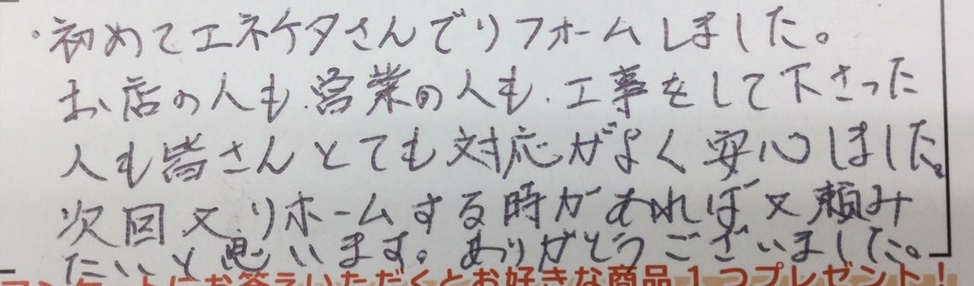 ・初めてエネケタさんでリフォームしました。
お店の人も、営業の人も、工事をして下さった
人も皆さんとても対応がよく安心しました。
次回又、リホームする時があれば又頼み
たいと思います。ありがとうございました。
アンケートにお答えいただくとお好きな商品1つプレゼント！